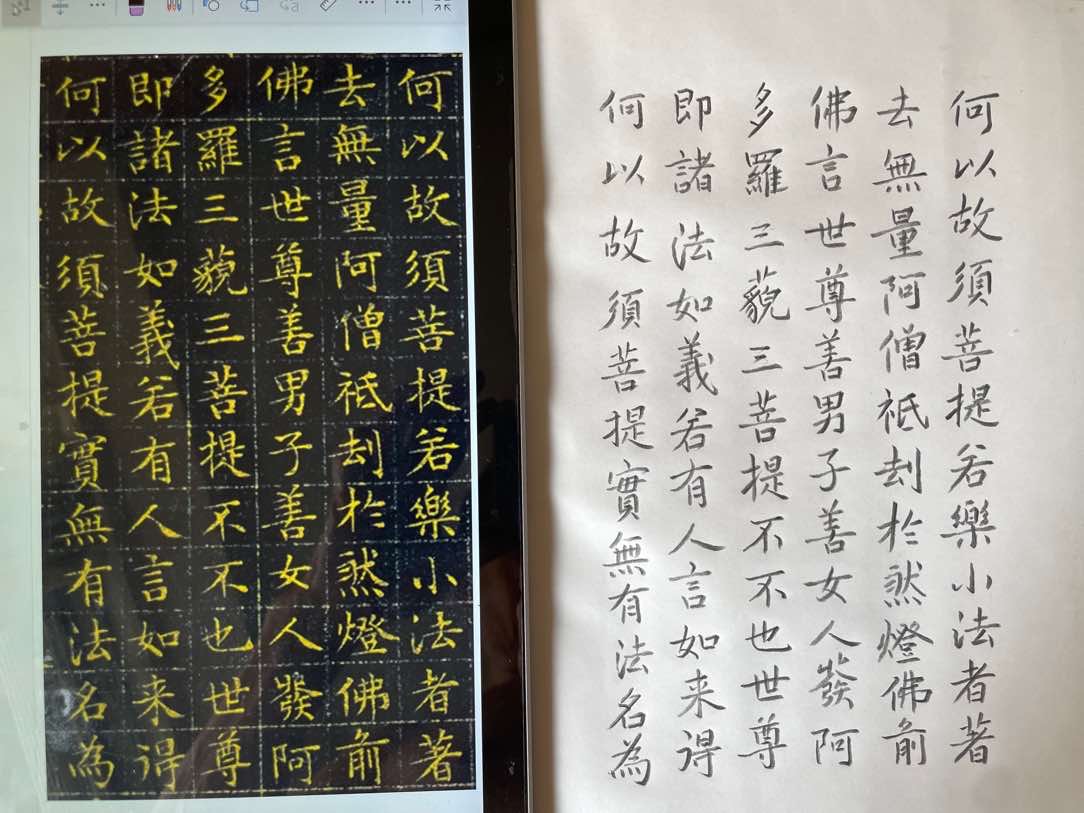 何以故須菩提若樂小法者著
去無量阿僧祇劫於然燈佛前
佛言世尊善男子善女人發阿
多羅三藐三菩提不不也世尊
即諸法如義若有人言如来得
何以故須菩提實無有法名為
何以故須菩提若樂小法者著
去無量阿僧祇劫於然燈佛前
佛言世尊善男子善女人發阿
多羅三藐三菩提不不也世尊
即諸法如義若有人言如来得
何以故須菩提實無有法名為